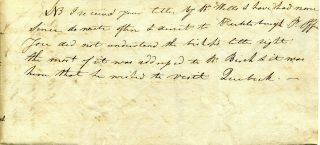 NB I received your letter by Mr Wells I have had none
since do write often & direct to
You did not understand the bishops letter right
the most of it was addressed to the Bush & it was
him that he wished to visit Quebeck. —